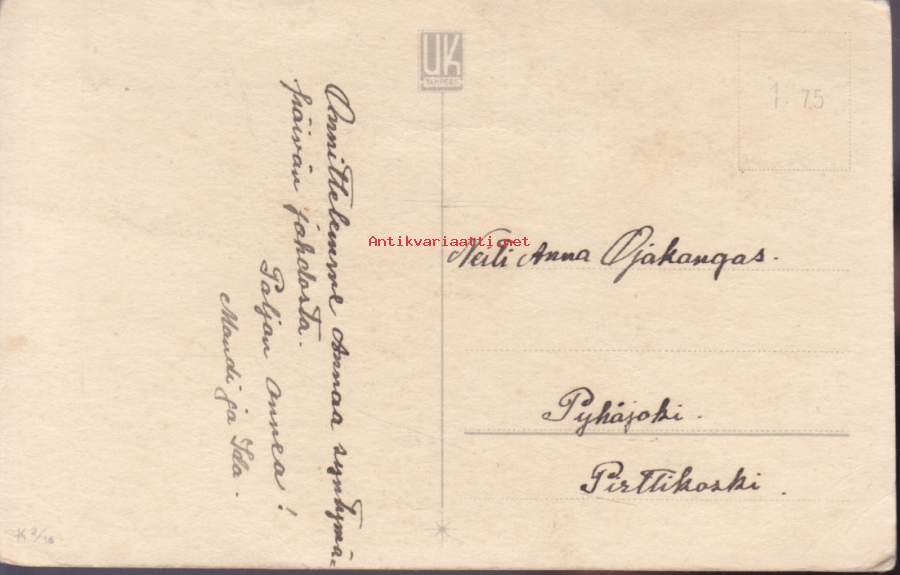 Onnittelemme Annaa syntymä-
päivän johdosta.
Paljon onnea!
Mandi ja Ida.
UK
TAMPERE
1.75
Antikvariaatti.net
Neiti Anna Ojakangas.
Pyhäjoki.
Pirttikoski.
K 2/16